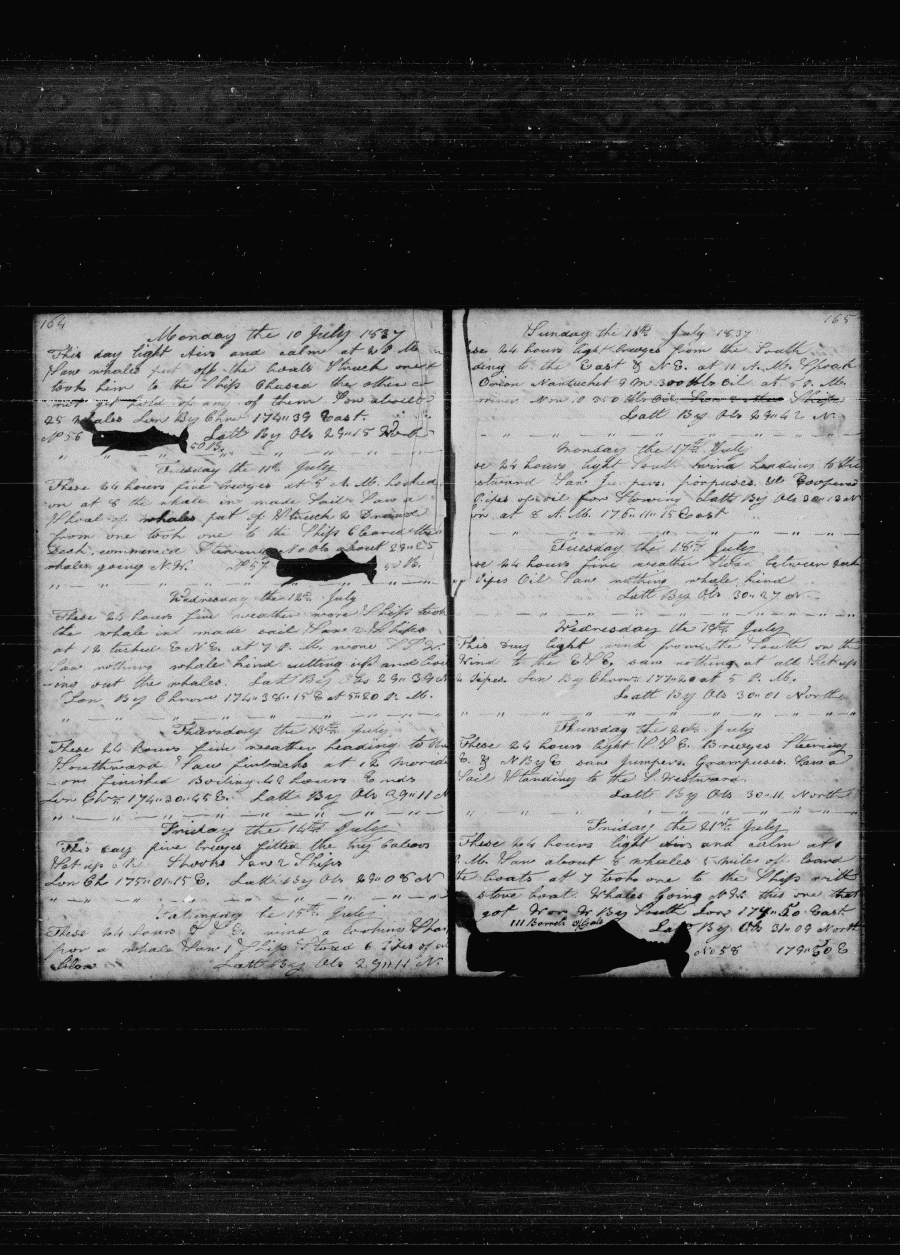 164
Monday the 10 July 1837
This day light Airs and calm at 2 P. M.
Saw whales put off the boats Struck one &
took him to the Ship Chased the other
not get hold of any of them Saw about
25 whales Lon By Chro 174"39 East
No 56 50 B. Latt By Obs 29"15 North
Tuesday the 11th July
These 24 hours fine breezes at 5 A. M. hooked
on at 8 the whale in made Sail Saw a
Shoal of whales put of Struck &
from one took one to the Ship Cleared the
Deck commenced Obs about 29"25
whales going N.W. No 57 50 B.
Wednesday the 12th July
These 24 hours fine weather were Ships took
the whale in made sail Saw 2 Ships
at 12 tacked E N E. at 7 P. M. wore
Saw nothing whale kind cutting up and boil
-ing out the whales. Latt By Obs 29"39 N
Lon By Chron 174"38"15 E at 5"20 P. M.
Thursday the 13th July
These 24 hours fine weather heading to the
Southward Saw finbacks at 12 Merid
-ion finished Boiling 42 hours Ends
Lon Chr. 174"30"45 E. Latt By Obs 29"11 N
Friday the 14th July
This day fine breezes fitted the try
Set up 6 Shooks Saw 2 Ships
Lon Ch 175"01"15 E. Latt By Obs 29"08 N
Saturday the 15th July
These 24 hours wind a looking
for a whale Saw 1 Ship Stoad 6 Pipes of
below Latt By Obs 29"11 N.
165
Sunday the 16th July 1837
24 hours light breezes from the South
to the East & N E. at 11 A. M. Spoak
Orion Nantucket 9 M 300 bbls Oil at 5 P. M.
10 350 bbls Oil. Saw 2 other Ships
Latt By Obs 29"42 N.
Monday the 17th July
24 hours light South wind heading to the
Saw Jumpers porpuses. We Coopered
Pipes of oil for Stowing Latt By Obs 30"13 N
at 8 A. M. 176"11"15 East
Tuesday the 18th July
24 hours fine weather Stoad between
Pipes Oil Saw nothing whale kind
Latt By Obs 30"27 N
Wednesday the 19th July
This day light wind from the South on the
Wind to the E S E. saw nothing at all Set up
Pipes. Lon By Chron 177"20 at 5 P. M.
Latt By Obs 30"01 North
Thursday the 20th July
These 24 hours light S S E. Breezes Steering
E. & N By E saw Jumpers. Grampuses. Saw a
Sail Standing to the S. Westward.
Latt By Obs 30"11 North
Friday the 21st July
These 24 hours light Airs and calm at
P. M. Saw about 8 whales 5 miles of
the Boats at 7 took one to the Ship with
stove boat. Whales Going N W this one that
got W By South Lon 178"50 East
111 Barrels Latt By Obs 31"09 North
No 58 178"50 E